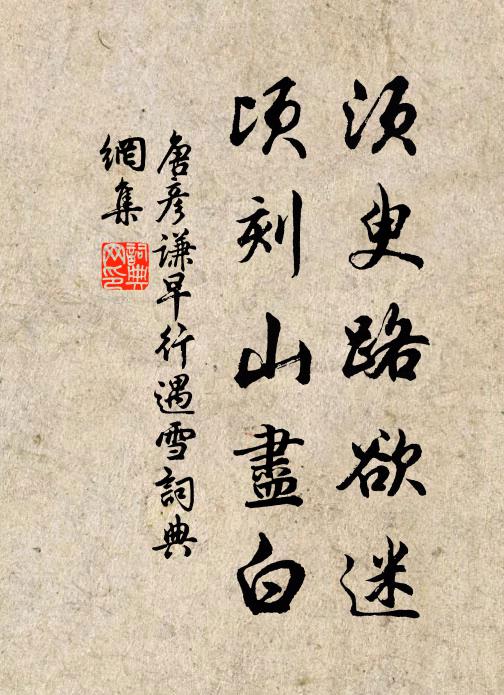 須臾路欲迷
頃刻山盡白
唐彥謙早行遇雪詞典
網集
詞典
网印